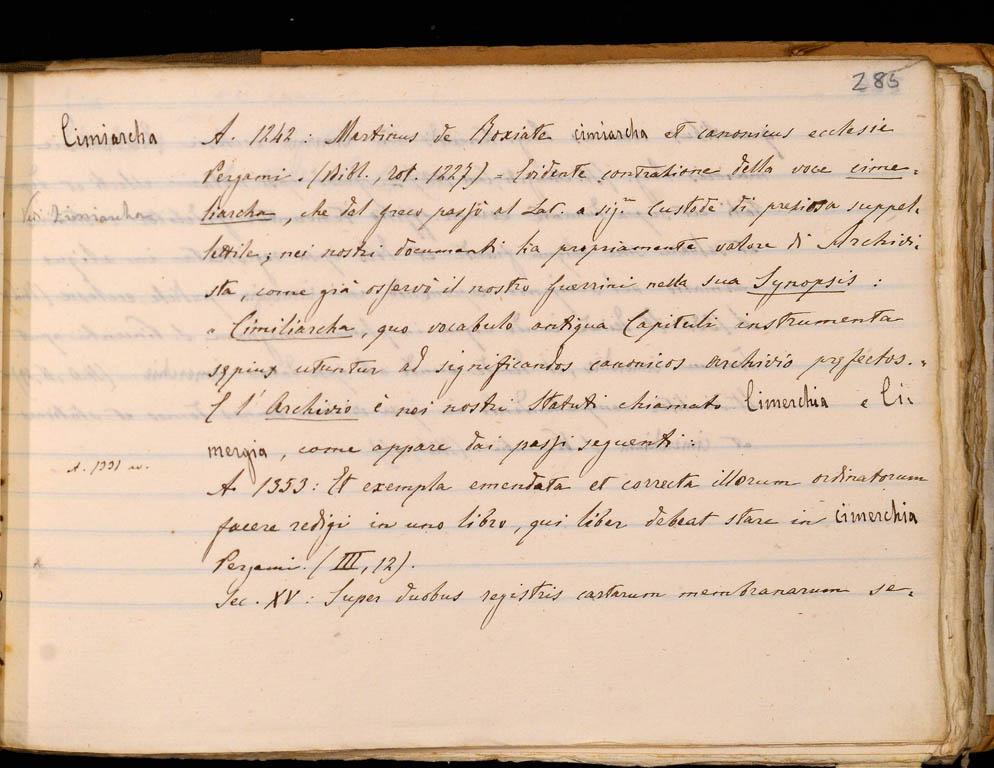 285
Cimiarcha
A. 1242: Martinus de Roxiate cimiarcha et canonicus ecclesie
Pergami. (Bibl., rot. 1227) = Evidente contratione della voce cime-
liarcha, che dal greco passò al Lat. a sig.re Custode di preziosa suppel-
Vedi Zimiarcha
lettile; nei nostri documenti ha propriamente valore di Archivi-
sta, come già osservò il nostro Guerrini nella sua Synopsis:
" Cimiliarcha, quo vocabulo antiqua Capituli instrumenta
sępius utuntur ad significandos canonicos archivio pręfectos. "
E l' Archivio è nei nostri Statuti chiamato Cimerchia e Ci-
mergia, come appare dai passi seguenti:
A. 1331
A. 1353: Et exempla emendata et correcta illorum ordinatorum
facere redigi in uno libro, qui liber debeat stare in cimerchia
Pergami. (III, 12).
Sec. XV: Super duobus registris cartarum membranarum se-